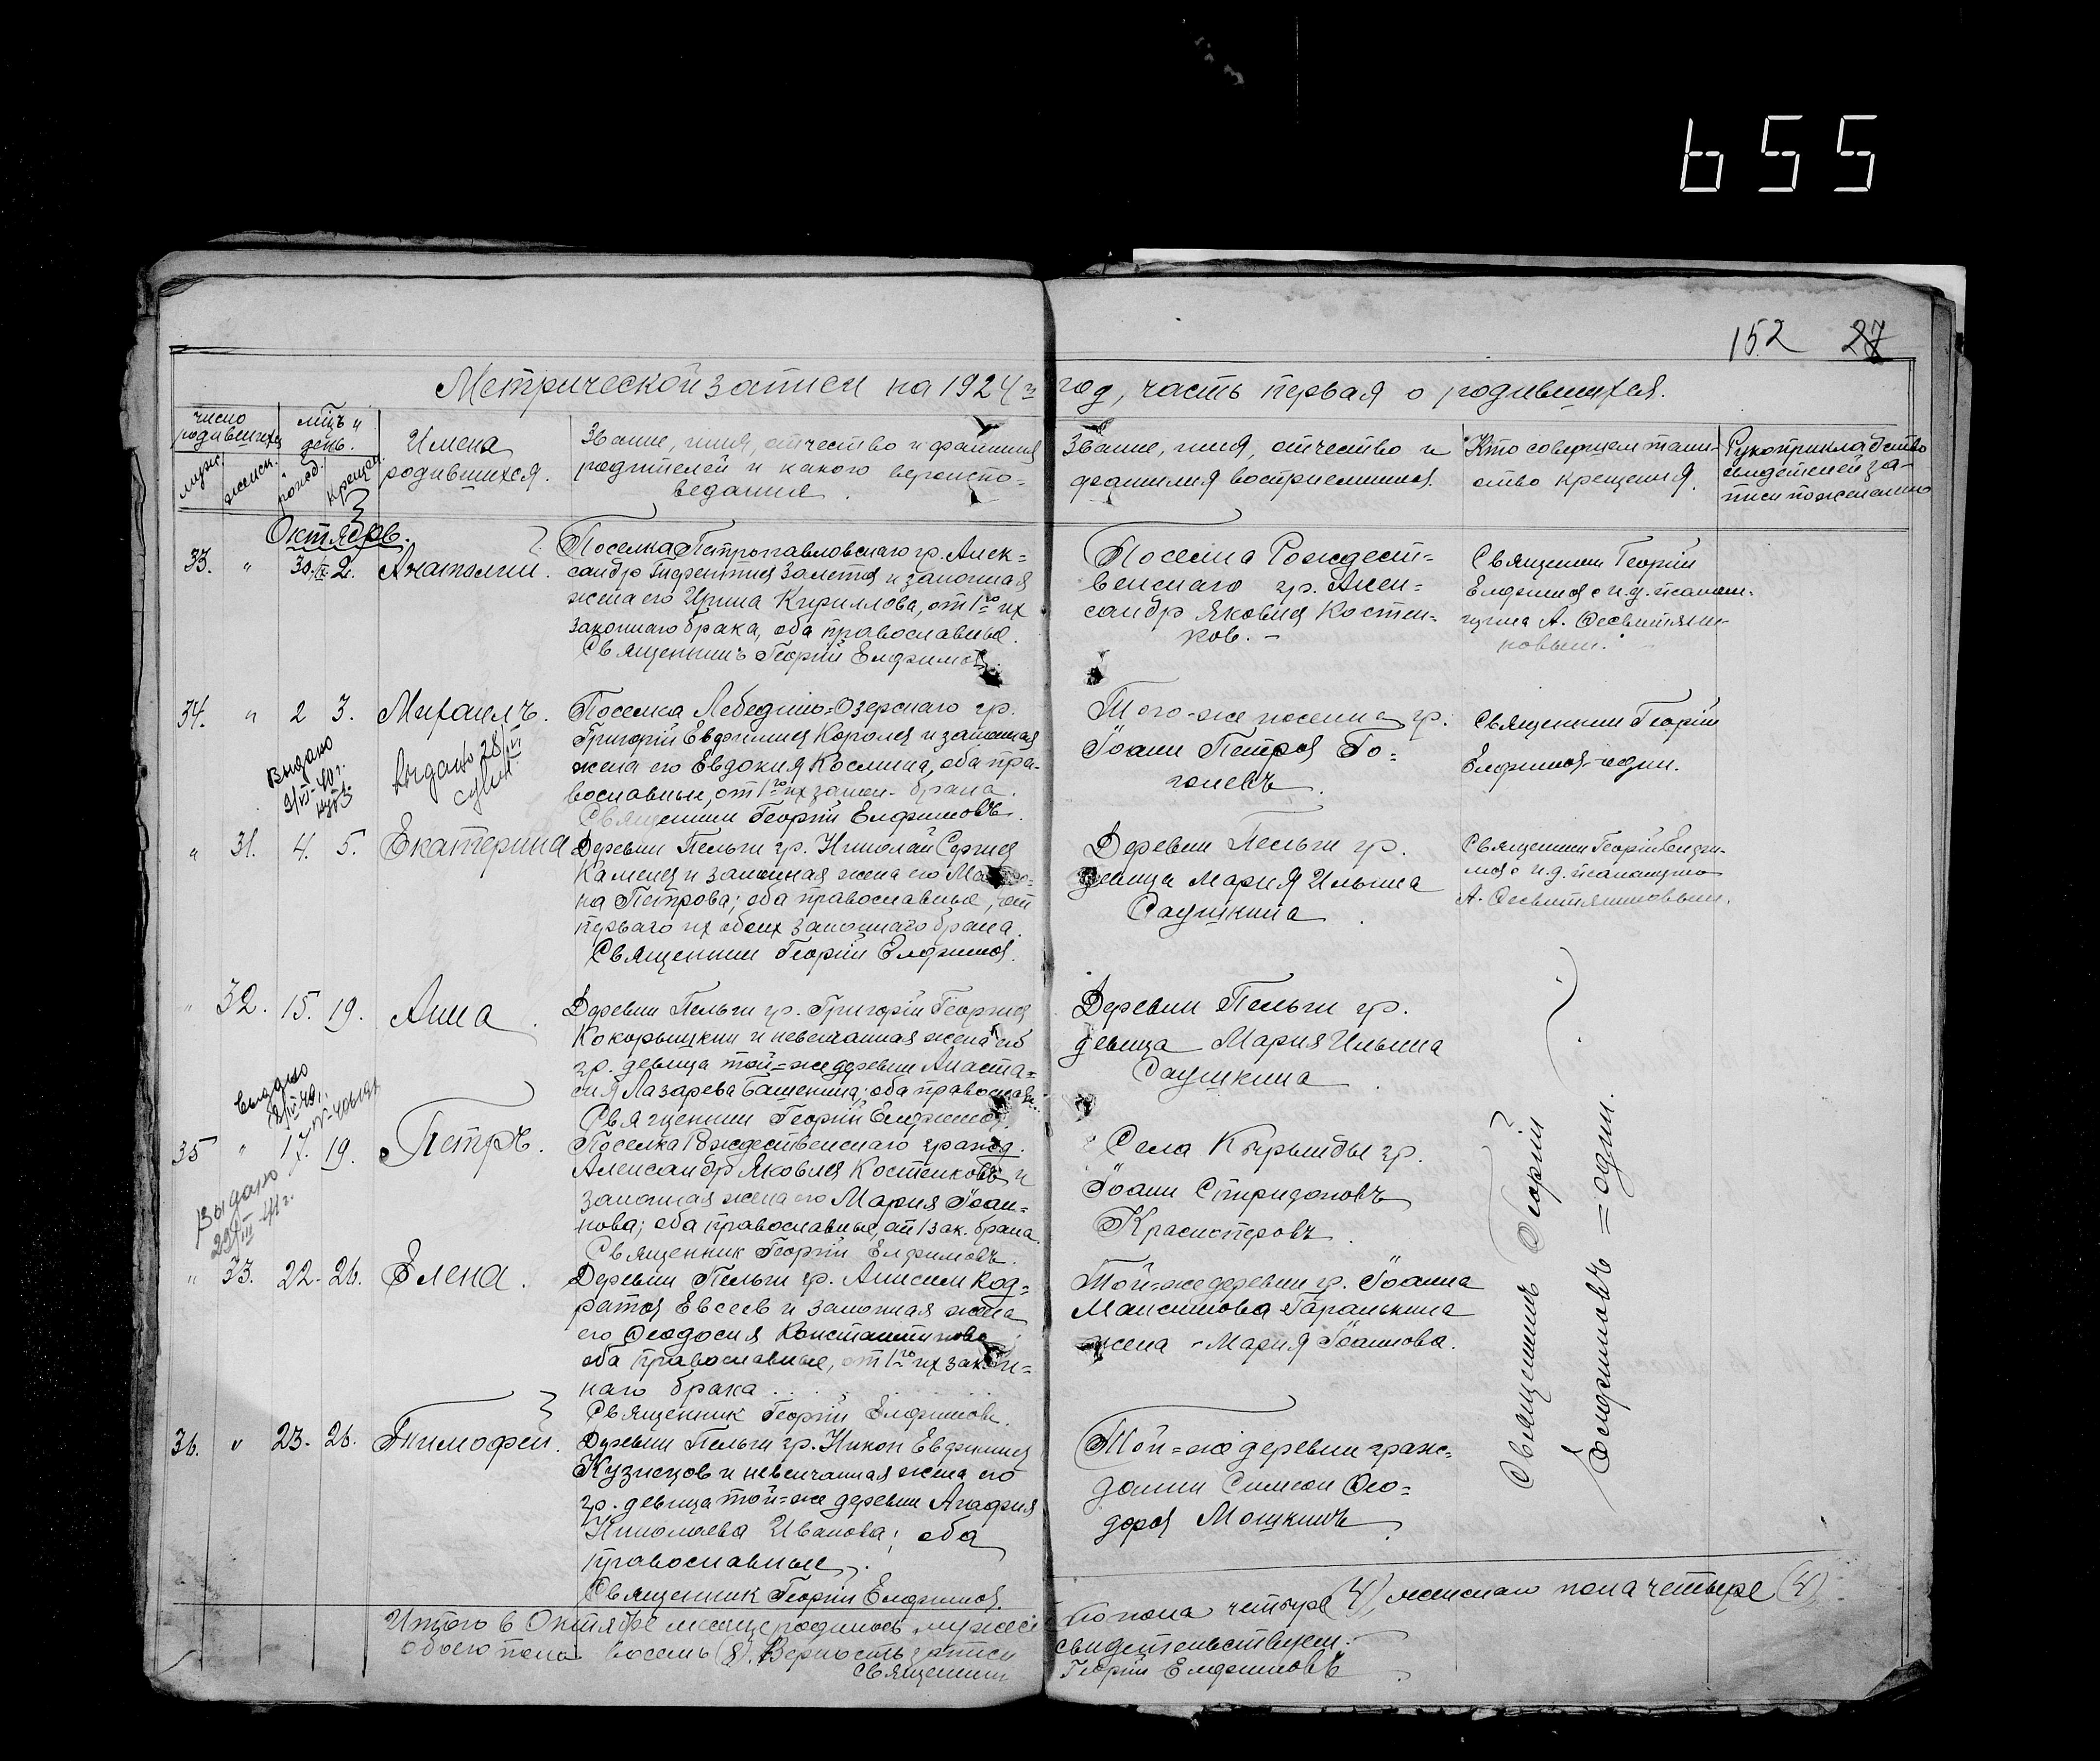 655
152 27
Метрической записи на 1924 й год, часть первая о родившихся.
число родившихся
мцъ и день.
муж.
женск.
рожд.
крещен.
Имена
родившихся.
Звание, имя, отчество и фамилия
родителей и какого вероиспо=
ведания.
Звание, имя, отчество и
фамилия восприемников.
Кто совершал таин-
ство крещения.
Рукоприкладство
свидетелей за-
писи по желанию
Октябрь.
33. " 30/IX 2. Анатолий.
Поселка Петропавловскаго гр. Алек=
сандр и законная
жена его Ирина Кириллова, от 1го их
законнаго брака, оба православные.
Священникъ Георгий Елфимов.
Поселка Рождест=
венскаго гр. Алек=
сандр Яковлев Костен=
ков. -
Священник Георгий
Елфимов с и.д. псалом-
щика А.
34. " 2 3. Михаилъ.
Выдано
Выдано 28/VI
Поселка Лебедино=Озерскаго гр.
Григорий Евфимиев Королев и законная
жена его Евдокия Космина, оба пра-
вославные, от 1го их закон. брака.
Священник Георгий Елфимовъ.
Того-же поселка гр.
Иоанн Петров Го=
голевъ.
Священник Георгий
Елфимов-один.
" 31. 4. 5. Екатерина
Деревни Пельги гр. Николай Сергиев
Каменев и законная жена его
на Петрова; оба православные, от
перваго их обоих законнаго брака.
Священник Георгий Елфимов.
Деревни Пельги гр.
девица Мария Ильина
Саушкина.
Священник Георгий Елфи-
мов с и.д. псаломщика
А.
" 32. 15. 19. Анна.
Деревни Пельги гр. Григорий Георгиев
Кокорышкин и невенчанная жена его
гр. девица той=же деревни Анаста=
сия Лазарева Башенина; оба православн.
Священник Георгий Елфимов.
Деревни Пельги гр.
девица Мария Ильина
Саушкина.
Выдано
35 " 17. 19. Петръ.
Выдано
29/III-41г.
Поселка Рождественскаго гражд.
Александр Яковлев Костенковъ и
законная жена его Мария Иоан=
нова; оба православные, от 1 зак. брака.
Священник Георгий Елфимовъ.
Села Кирылиды гр.
Иоанн Спиридоновъ
Красноперовъ.
" 33. 22. 26. Елена.
Деревни Пельги гр. Анисим Код=
ратов Евсеев и законная жена
его Феодосия Константинова
оба православные, от 1го их закон=
наго брака.
Священник Георгий Елфимовъ.
Той=же деревни гр. Иоанна
Максимова Гаранькина
жена - Мария Иоаннова.
36. " 23. 26. Тимофей.
Деревни Пельги гр. Никон Евфимиев
Кузнецов и невенчанная жена его
гр. девица той=же деревни Агафия
Николаева Иванова; оба
православные.
Священник Георгий Елфимов.
Той=же деревни граж=
данин Симеон Фео=
доров Мошкинъ.
Священникъ Георгий
Елфимовъ = один.
Итого в Октябре месяце родилось мужеска-го пола четыре (4), женскаго пола четыре (4)
обоего пола восемь (8). Верность записи свидетельствуем:
Священник Георгий Елфимовъ.